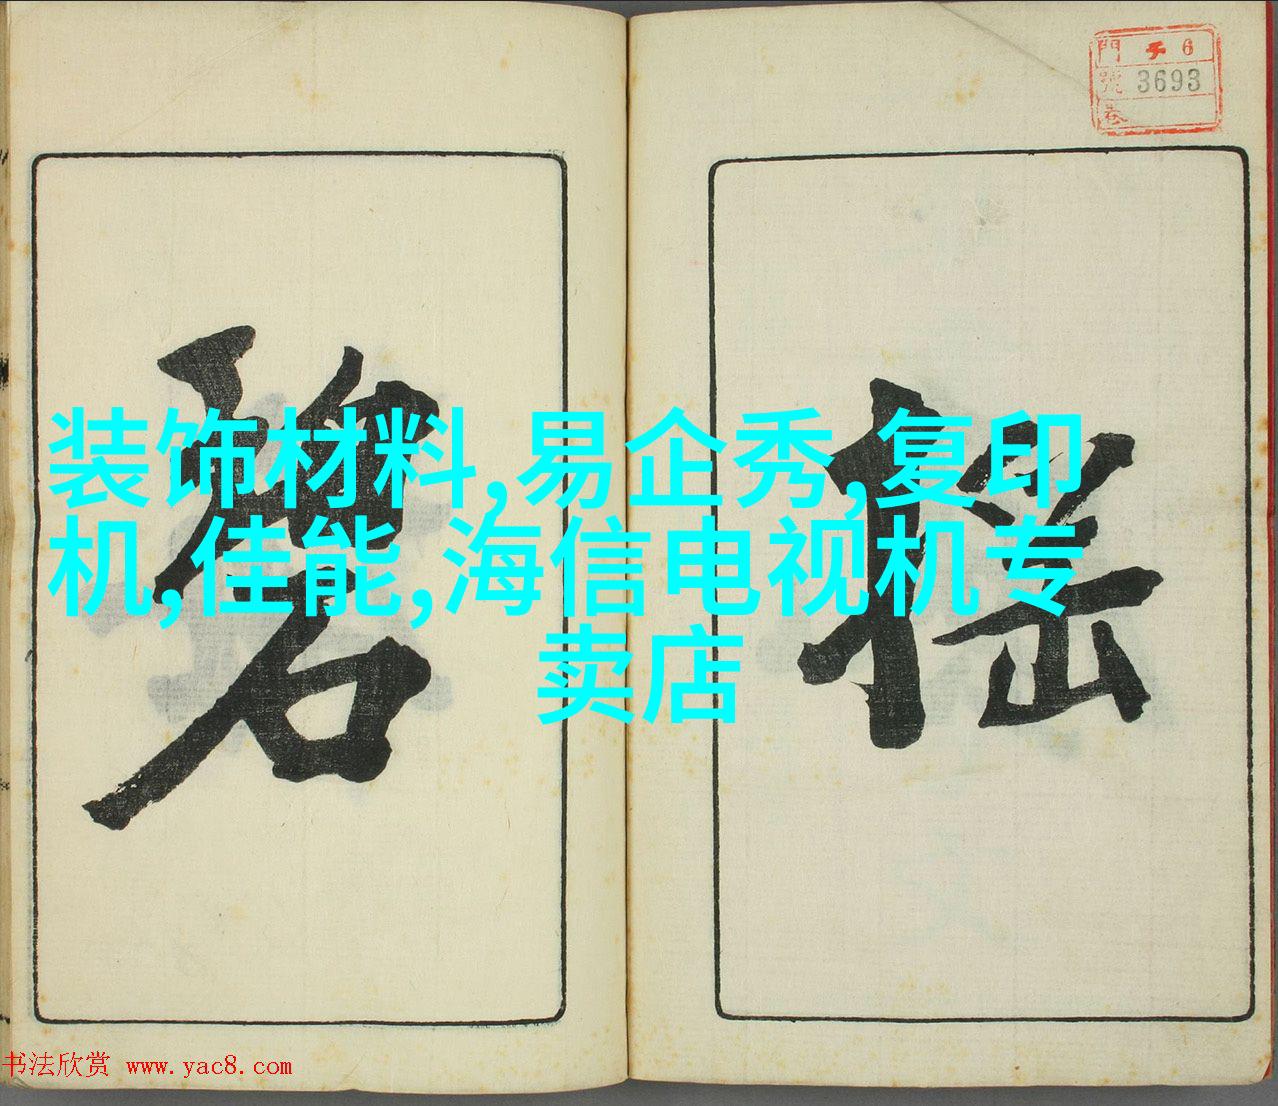 門 千 6
號 3693
卷
搖
碧
装饰材料,易企秀,复印
机,佳能,海信电视机专
卖店
书法欣赏 www.yac8.com